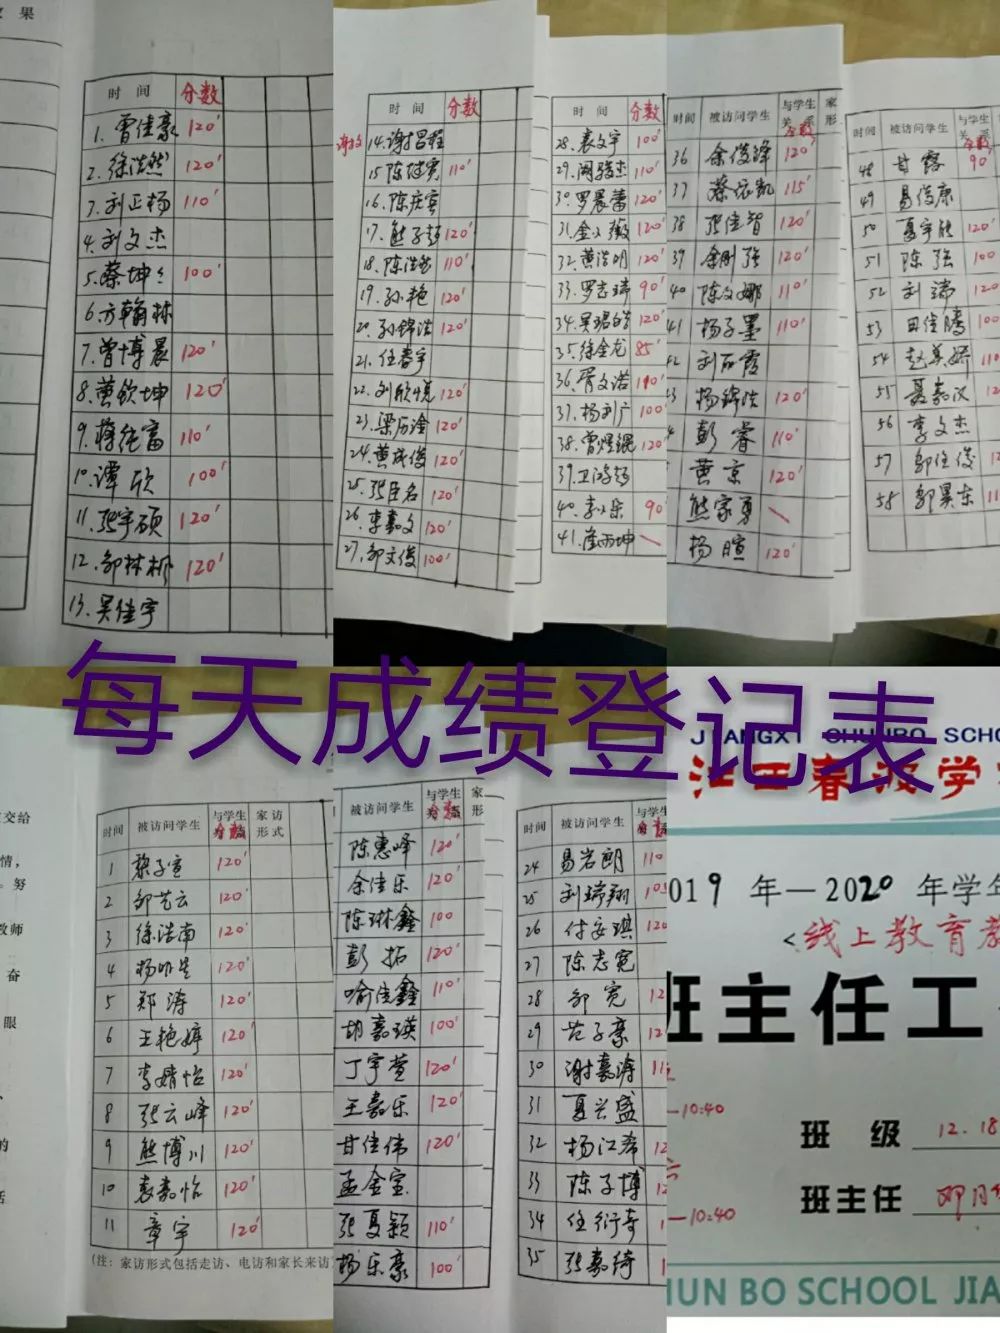 效 果
时 间 分数
1. 曾佳豪 120'
2. 徐浩然 120'
3. 刘正杨 110'
4. 刘文杰
5. 蔡坤 100'
6. 方翰林
7. 曾博晨 120'
8. 黄钦坤 120'
9. 蒋纯富 110'
10. 谭欣 100'
11. 张宇硕 120'
12. 邹林枫 120'
13. 吴佳宇
时 间 分数
14. 谢昌程
15 陈建 110'
16. 陈庆
17. 熊子 120'
18. 陈浩 110'
19. 孙艳 120'
20. 孙锦浩 120'
21. 任春宇
22. 刘欣悦 120'
23. 梁历淦 120'
24. 黄成俊 120'
25. 张臣名 120'
26. 李嘉文 120'
27. 邹文俊 100'
时 间 分数
28. 袁文宇 100'
29. 骏杰 110'
30. 罗晨蕾 120'
31. 金 薇 120'
32. 黄浩明 120'
33. 罗志 90'
34. 吴 120'
35. 徐金龙 85'
36. 胥文诺 110'
37. 杨刘广 100'
38. 曾煜锟 120'
39. 卫
40. 李 乐 90'
41. 雨坤
时间 被访问学生 与学生关系 分数 家 形
36 余俊峰 120'
37 蔡依凯 115'
38 张佳智 120'
39 余刚强 120'
40 陈文娜 110'
41 杨子墨 110'
42 刘雨霞
43 杨锦 120'
彭睿 110'
黄京 120'
熊家勇
杨暄 120'
时间 被访问学生 与学生关系 分数
48 甘露 90'
49 易俊康
50 夏宇 120'
51 陈强 100
52 刘瑞 120
53 田佳腾 100
54 赵英娇 110
55 聂嘉汉
56 李文杰
57 邹佳俊
58 郭昊东
每天成绩登记表
交给
情,
。努
教师
奋
眼
的
时间 被访问学生 与学生 分数 家 访 形 式
1 黎子萱 120'
2 邹艺云 120'
3 徐浩南 120'
4 杨 120'
5 郑涛 120'
6 王艳婷 120'
7 李婧怡 120'
8 张云峰 120'
9 熊博川 120'
10 袁嘉怡 120'
11 章宇 120'
(注:家访形式包括走访、电访和家长来访
被访问学生 与学生 分数 家 形
陈惠峰 120'
余佳乐 120'
陈琳鑫 100
彭拓 120'
喻佳鑫 110'
胡嘉瑛 100'
丁宇萱 120'
王嘉乐 120'
甘佳伟 120'
孟金宝
张夏颖 110'
杨乐豪 100'
时间 被访问学生 与学生 分数
24 易岩朗 110
25 刘瑞翔 105
26 付安琪 120
27 陈志宽
28 邹宽 12
29 范子豪 12
30 谢嘉涛 11
31 夏兴盛
32 杨江希 12
33 陈子博 12
34 任衍奇
35 张嘉绮
JIANGXI CHUNBO SCHO
江西春波学
2019 年—2020 年学年
<线上教育教
班主任工
—10:40
班 级 12.18
班主任 邓月
—10:40
HUN BO SCHOOL JIA